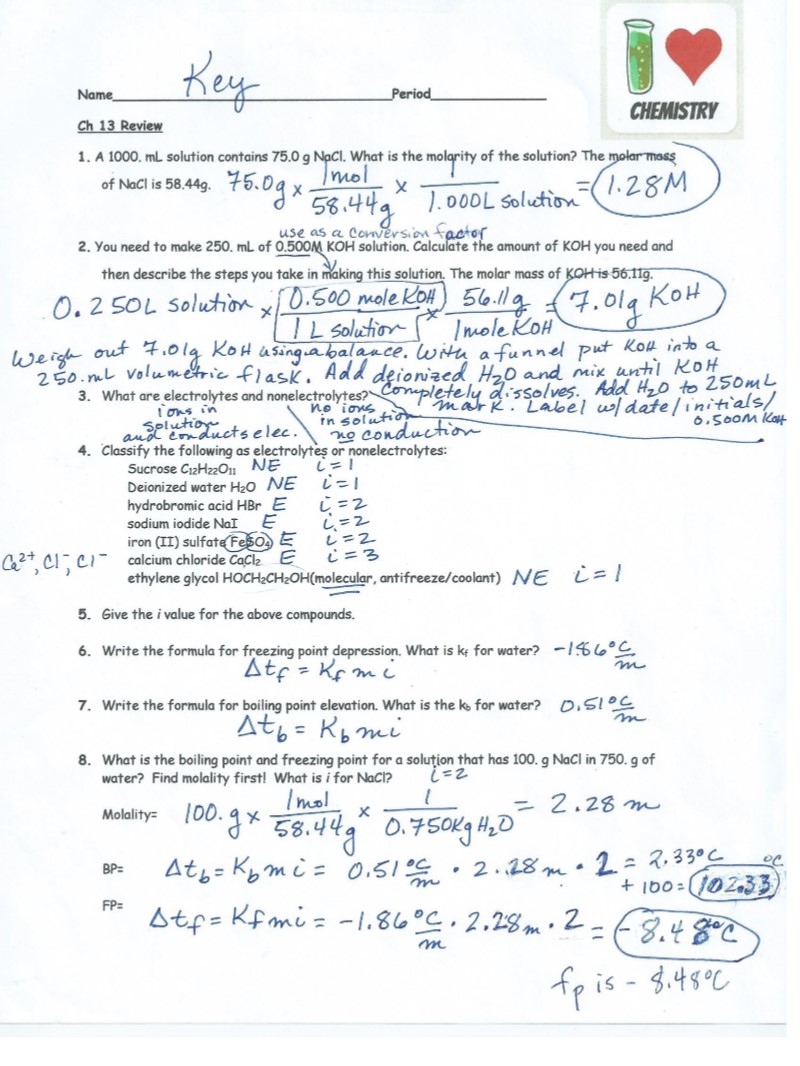 Name Key Period
CHEMISTRY
Ch 13 Review
1. A 1000. mL solution contains 75.0 g NaCl. What is the molarity of the solution? The molar mass
of NaCl is 58.44g. 75.0g x 1mol/58.44g x 1/1.000L solution = 1.28M
use as a conversion factor
2. You need to make 250. mL of 0.500M KOH solution. Calculate the amount of KOH you need and
then describe the steps you take in making this solution. The molar mass of KOH is 56.11g.
0.250L solution x 0.500 mole KOH/1 L solution x 56.11g/1mole KOH = 7.01g KOH
Weigh out 7.01g KOH using a balance. With a funnel put KOH into a
250.mL volumetric flask. Add deionized H₂O and mix until KOH
completely dissolves. Add H₂O to 250mL
mark. Label w/date/initials/
0.500M KOH
3. What are electrolytes and nonelectrolytes?
ions in solution and conducts elec.
no ions in solution no conduction
4. Classify the following as electrolytes or nonelectrolytes:
Sucrose C₁₂H₂₂O₁₁ NE i=1
Deionized water H₂O NE i=1
hydrobromic acid HBr E i=2
sodium iodide NaI E i=2
iron (II) sulfate FeSO₄ E i=2
Ca²⁺, Cl⁻, Cl⁻ calcium chloride CaCl₂ E i=3
ethylene glycol HOCH₂CH₂OH(molecular, antifreeze/coolant) NE i=1
5. Give the i value for the above compounds.
6. Write the formula for freezing point depression. What is kf for water? -1.86 °C/m
Δtf = Kf m i
7. Write the formula for boiling point elevation. What is the kb for water? 0.51 °C/m
Δtb = Kb m i
8. What is the boiling point and freezing point for a solution that has 100. g NaCl in 750. g of
water? Find molality first! What is i for NaCl? i=2
Molality= 100.g x 1mol/58.44g x 1/0.750Kg H₂O = 2.28 m
BP= Δtb = Kb m i = 0.51 °C/m · 2.28m · 2 = 2.33°C
+ 100 = 102.33 °C
FP= Δtf = Kf m i = -1.86 °C/m · 2.28m · 2 = -8.48°C
fp is -8.48°C